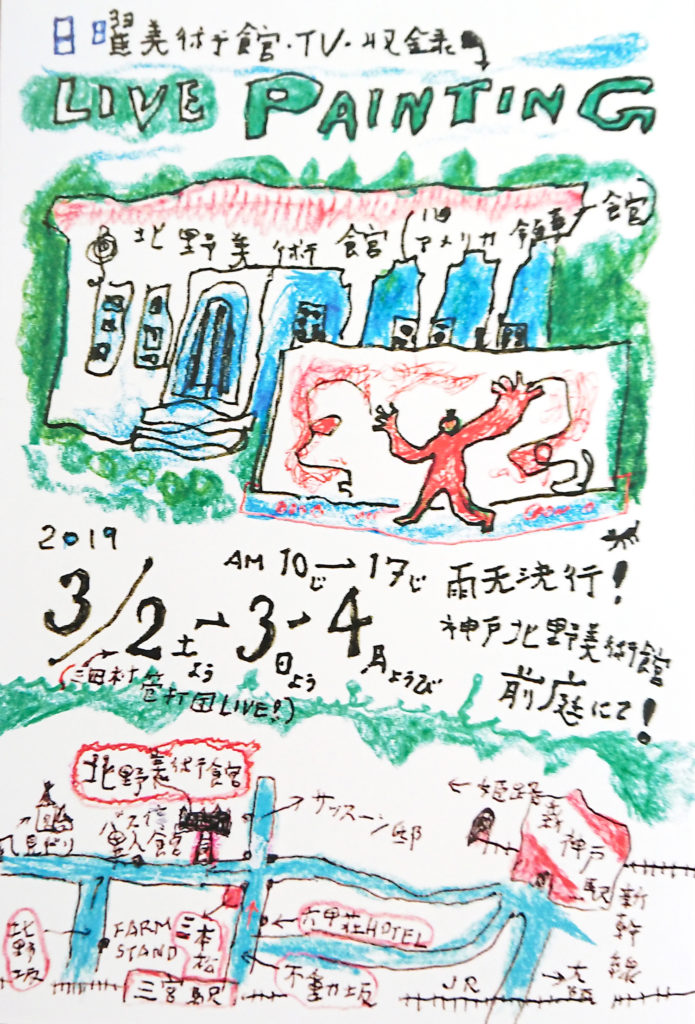 日曜美術館・TV・収録
LIVE PAINTING
北野美術館(旧アメリカ領事館)
2019
AM 10じ→17じ
雨天決行!
3/2土よう→3日よう→4月ようび
神戸北野美術館
前庭にて!
管打団LIVE!)
北野美術館
サッスーン邸
←姫路
新神戸駅
新幹線
風見どり
異人館
北野坂
FARM STAND
三本松
六甲荘HOTEL
不動坂
三宮駅
JR
→大阪